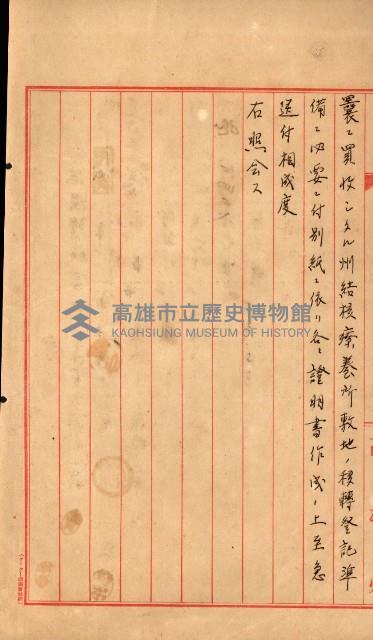 曩ニ買收シタル州結核療養所敷地ノ移轉登記準
備ニ必要ニ付別紙ニ依リ各證明書作成ノ上至急
送付相成度
右照会ス
高雄市立歷史博物館
KAOHSIUNG MUSEUM OF HISTORY